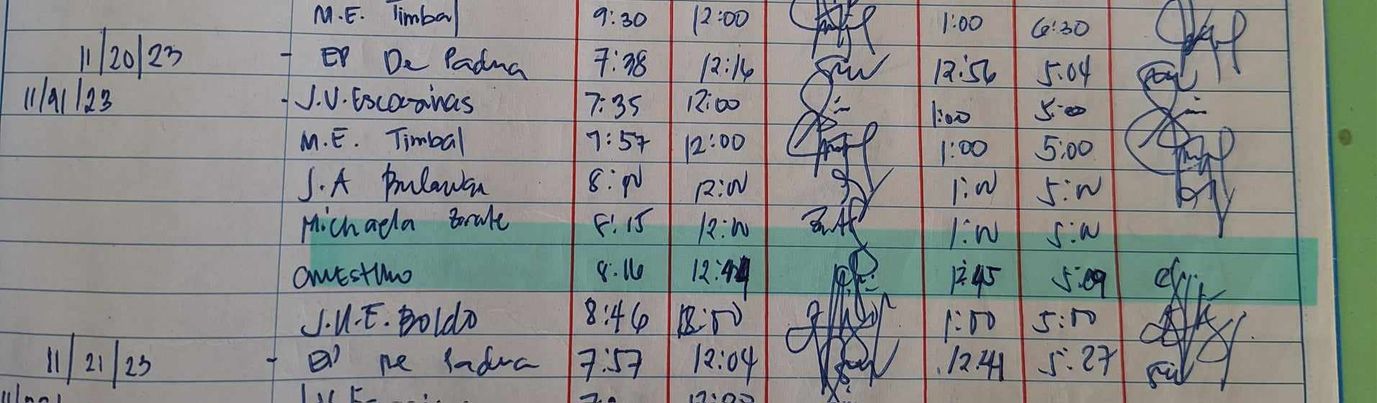 M.E. Timbal 9:30 12:00 1:00 6:30
11/20/23 - EP De Padua 7:38 12:16 12:56 5:04
11/21/23 - J.V. Escorinas 7:35 12:00 1:00 5:00
M.E. Timbal 7:57 12:00 1:00 5:00
J.A 8:00 12:00 1:00 5:00
Michaela Zarate 8:15 12:00 1:00 5:00
8:16 12:45 5:09
J.U.E. Boldo 8:46 12:00 1:00 5:00
11/21/23 - EP De Padua 7:57 12:04 12:41 5:27
12:00